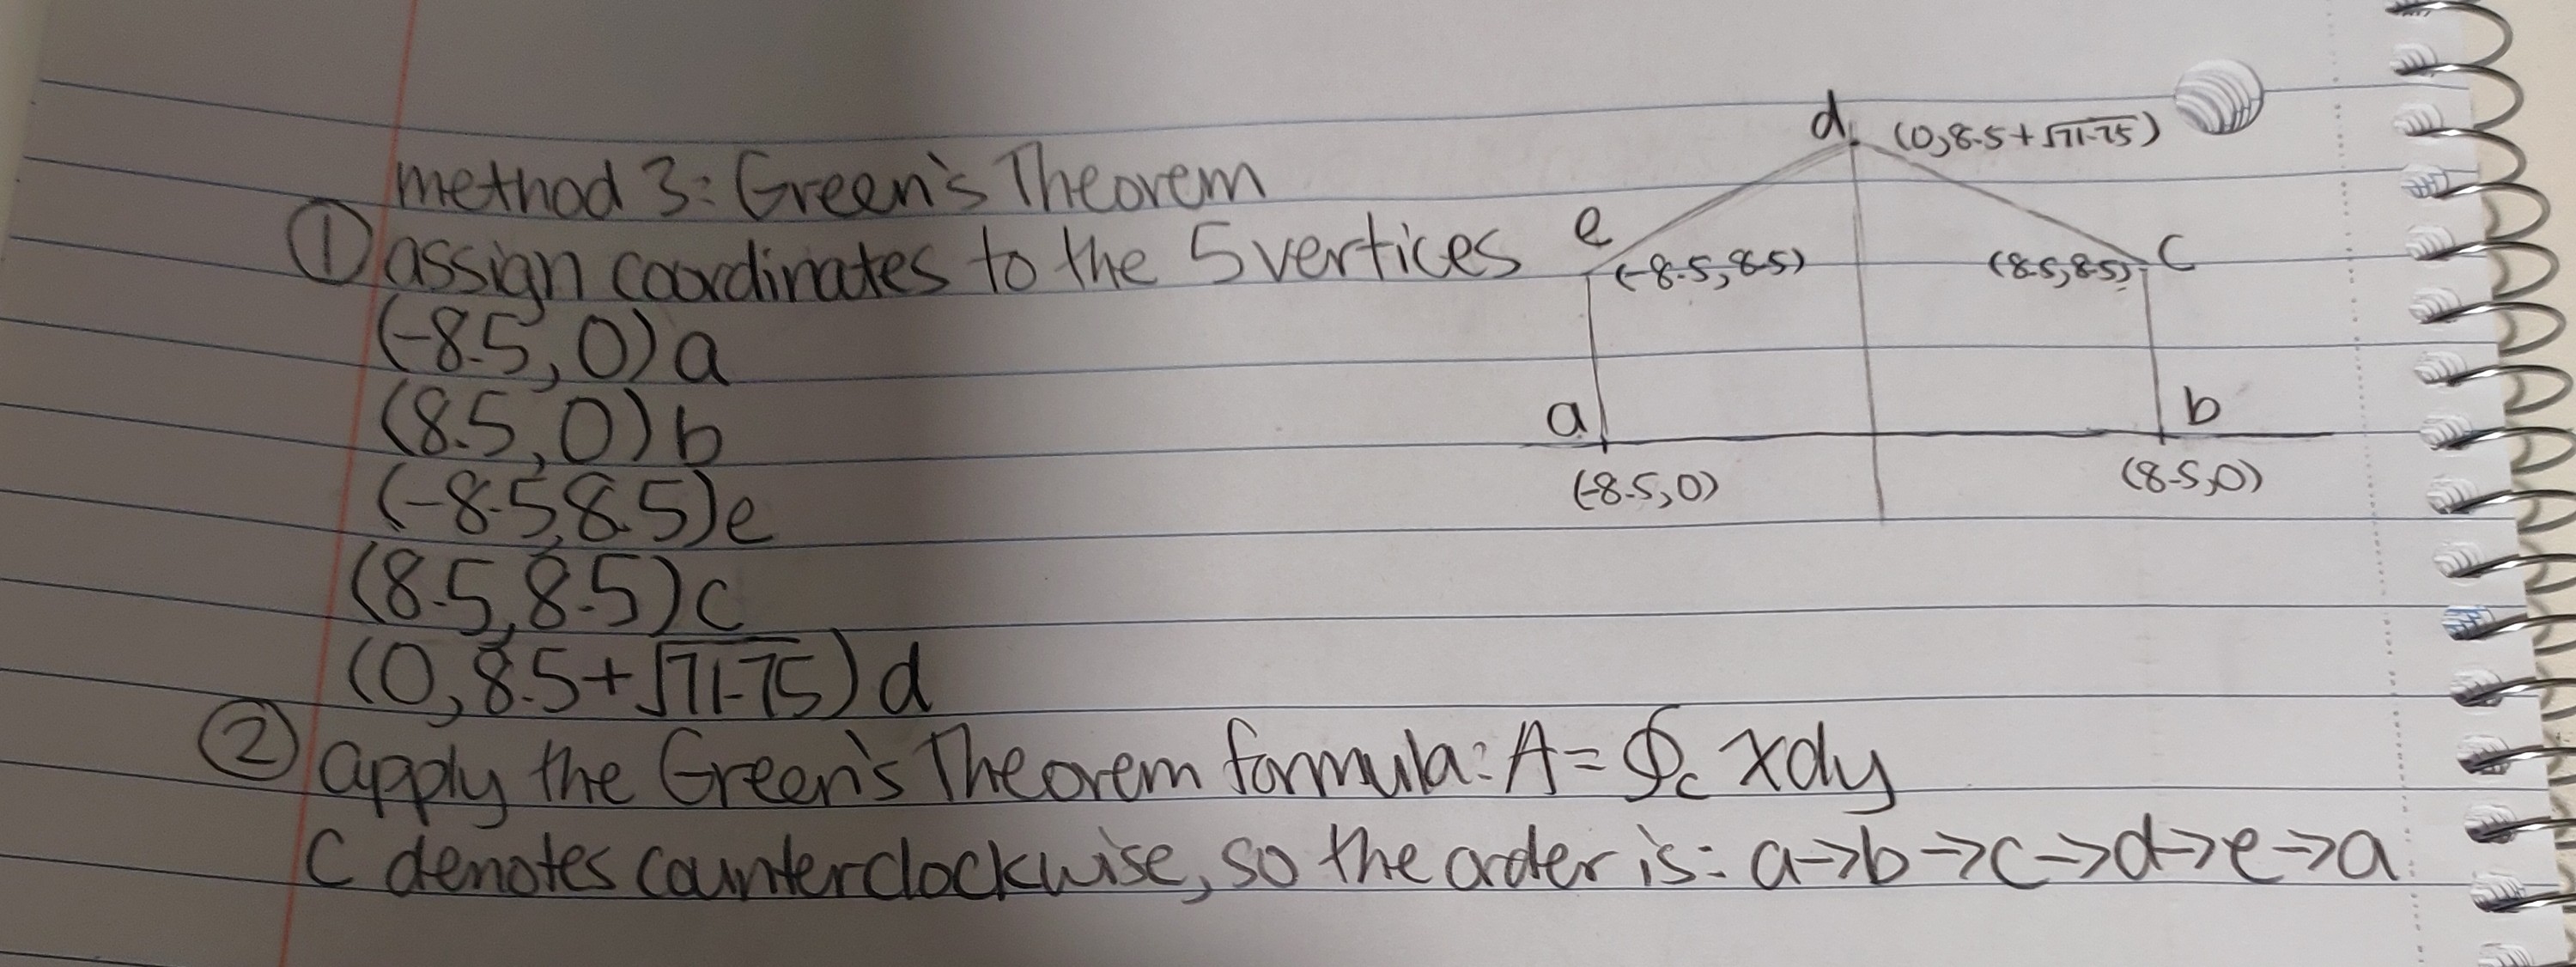 method 3: Green's Theorem
① assign coordinates to the 5 vertices
(-8.5, 0) a
(8.5, 0) b
(-8.5, 8.5) e
(8.5, 8.5) c
(0, 8.5+√71.75) d
② apply the Green's Theorem formula: A = ∮c xdy
C denotes counterclockwise, so the order is: a→b→c→d→e→a
d (0, 8.5+√71.75)
e (-8.5, 8.5) (8.5, 8.5) c
a b
(-8.5, 0) (8.5, 0)